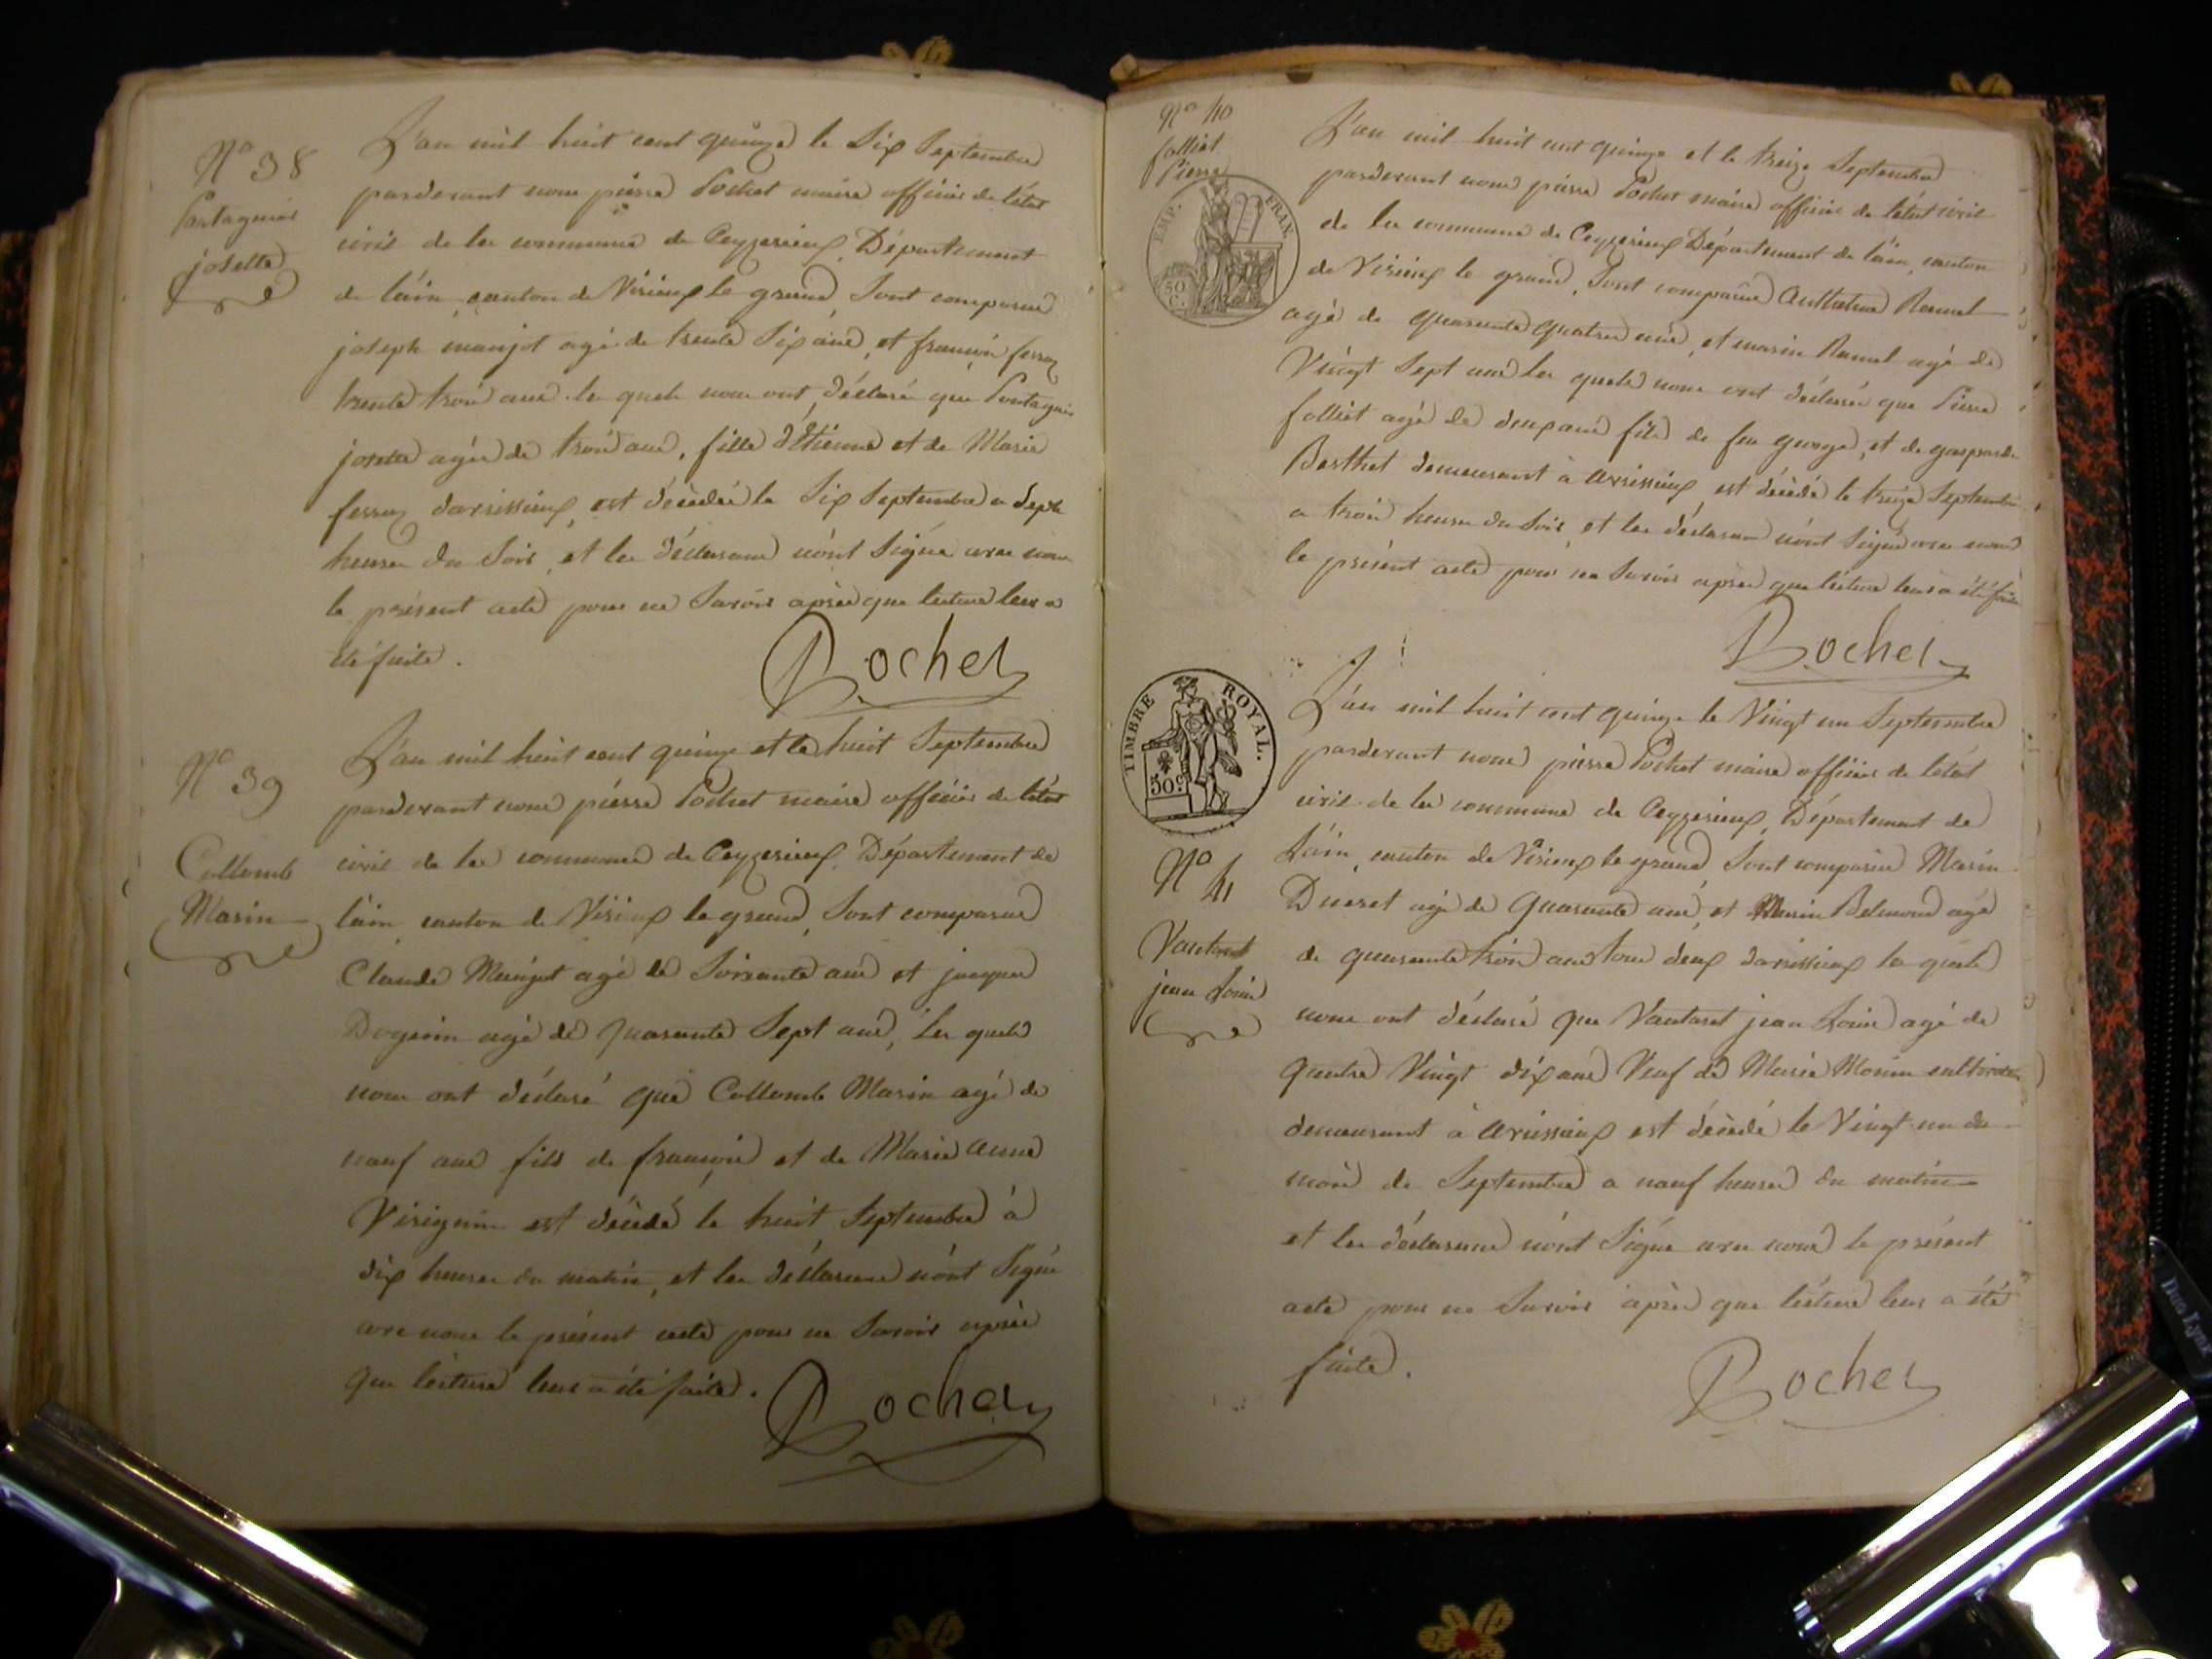 N° 38
josette
L'an mil huit cent quinze le Six Septembre
pardevant nous pierre Pochet maire officier de létat
civil de la commune de Ceyzerieux, Département
de láin, canton de Virieux le grand Sont comparus
joseph manjot agé de trente Six ans, et françois ferroz
trente trois ans les quels nous ont déclaré que
josette agée de trois ans, fille d'Etienne et de Marie
ferroz darvissieux, est décédée le Six Septembre a Sept
heures du Soir, et les déclarans nónt Signé avec nous
le présent acte pour ne Savoir après que lecture leur a
été faite.
Pochet
N° 39
Collomb
Marin
L'an mil huit cent quinze et le huit Septembre
pardevant nous pierre Pochet maire officier de létat
civil de la commune de Ceyzerieux, Département de
láin, canton de Virieux le grand, Sont comparus
Claude Manjot agé de Soixante ans et jacques
Doguin agé de quarante Sept ans, les quels
nous ont déclaré que Collomb Marin agé de
neuf ans fils de françois et de Marie anne
Virignin est décédé le huit Septembre à
dix heures du matin, et les déclarans nónt Signé
avec nous le présent acte pour ne Savoir après
que lecture leur a été faite.
Pochet
N° 40
folliet
Pierre
EMP. FRAN.
50
C.
L'an mil huit cent quinze et le treize Septembre
pardevant nous pierre Pochet maire officier de létat civil
de la commune de Ceyzerieux Département de láin, canton
de Virieux le grand, Sont comparus Anthelme Ramel
agé de quarante quatre ans, et marin Ramel agé de
Vingt Sept ans les quels nous ont déclaré que Pierre
folliet agé de deux ans fils de feu george, et de gasparde
Berthet demeurant à arvissieux est décédé le treize Septembre
a trois heures du Soir, et les déclarans nónt Signé avec nous
le présent acte pour ne Savoir après que lécture leur a été faite
Pochet
TIMBRE ROYAL.
50c.
N° 41
Vautaret
jean Louis
L'an mil huit cent quinze le Vingt un Septembre
pardevant nous pierre Pochet maire officier de létat
civil de la commune de Ceyzerieux, Département de
Láin, canton de Virieux le grand Sont comparus Marin
Ducret agé de quarante ans, et Marin Belmond agé
de quarante trois ans tous deux darvissieux les quels
nous ont déclaré que Vautaret jean Louis agé de
quatre Vingt dix ans Veuf de Marie Morin cultivateur
demeurant à arvissieux est décédé le Vingt un du
mois de Septembre a neuf heures du matin
et les déclarans nónt Signé avec nous le présent
acte pour ne Savoir après que lécture leur a été
faite.
Pochet